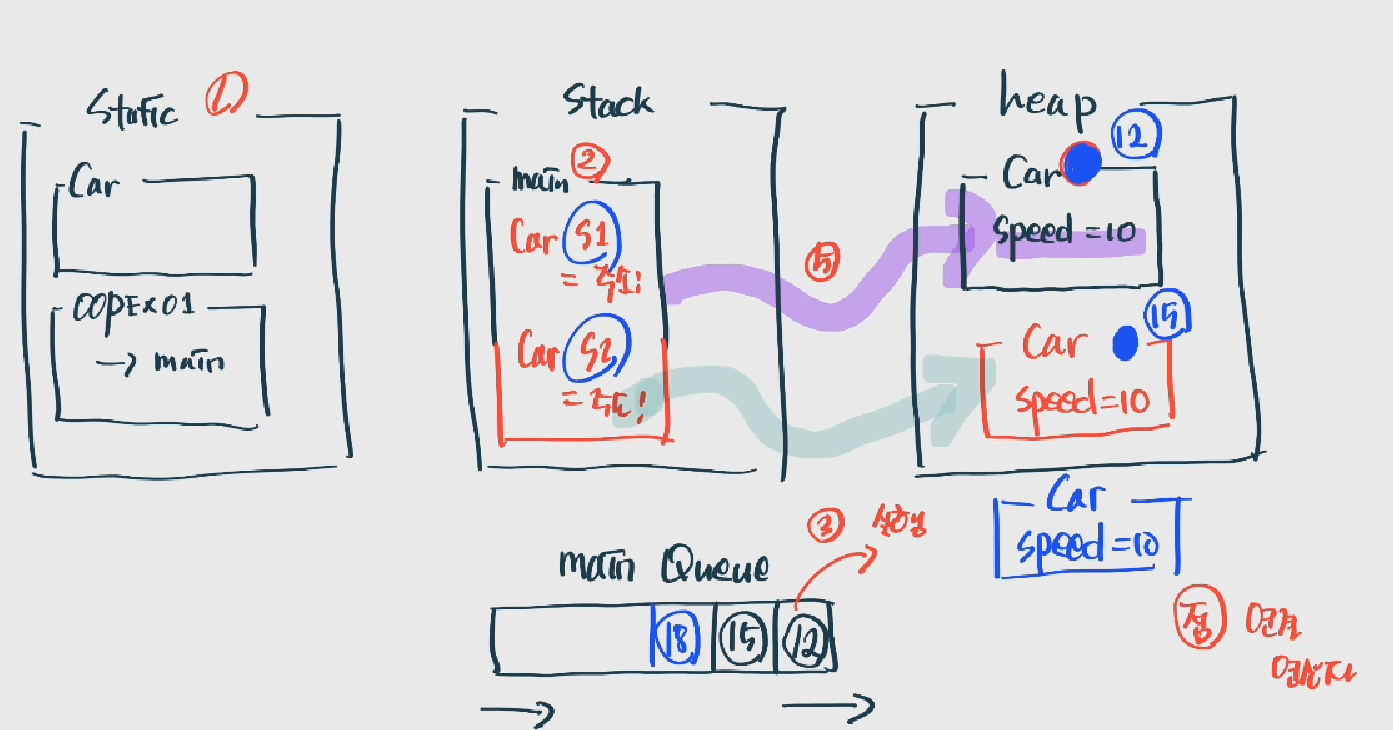 Static ①
Car
OOPEx01
→ main
Stack
main ②
Car S1
= 주소!
Car S2
= 주소!
⑤
heap
Car ⑫
speed = 10
Car ⑮
speed = 10
Car
speed = 10
③ 실행
main Queue
⑱ ⑮ ⑫
점 연결
연산자